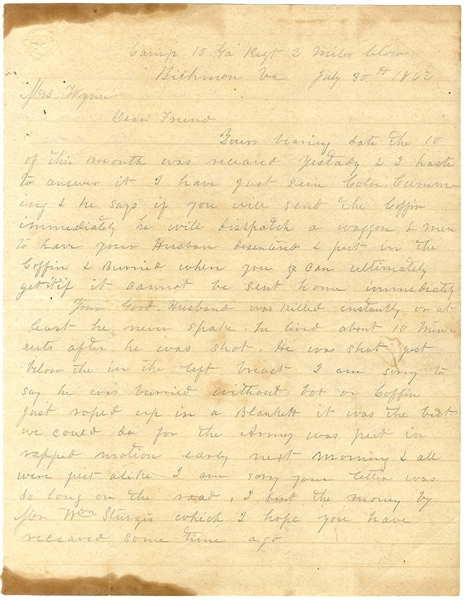 Camp 10 Ga Regt 2 Miles below
Richmon Va July 30th 1862
Mrs Wynn
Dear Friend
Yours bearing date the 10
of this month was receaved yestady & I haste
to answer it I have just seen Coln Cumm
ing & he says if you will send the Coffin
immediately he will dispatch a waggon & men
to have your Husban desentend & put in the
Coffin & Burried where you can ultimately
get it if it cannot be sent home immediately
Your Good Husband was killed instantly or at
least he never spake. he lived about 10 Min
euts after he was shot. He was shot just
below the in the left breast I am sorry to
say he was burried without box or Coffin
just roped up in a Blankett it was the best
we could do for the Army was put in
rapped motion early next morning & all
were just alike I am sorry your letter was
so long on the road, I sent the money by
Mr Wm Sturgis which I hope you have
receaved some time ago